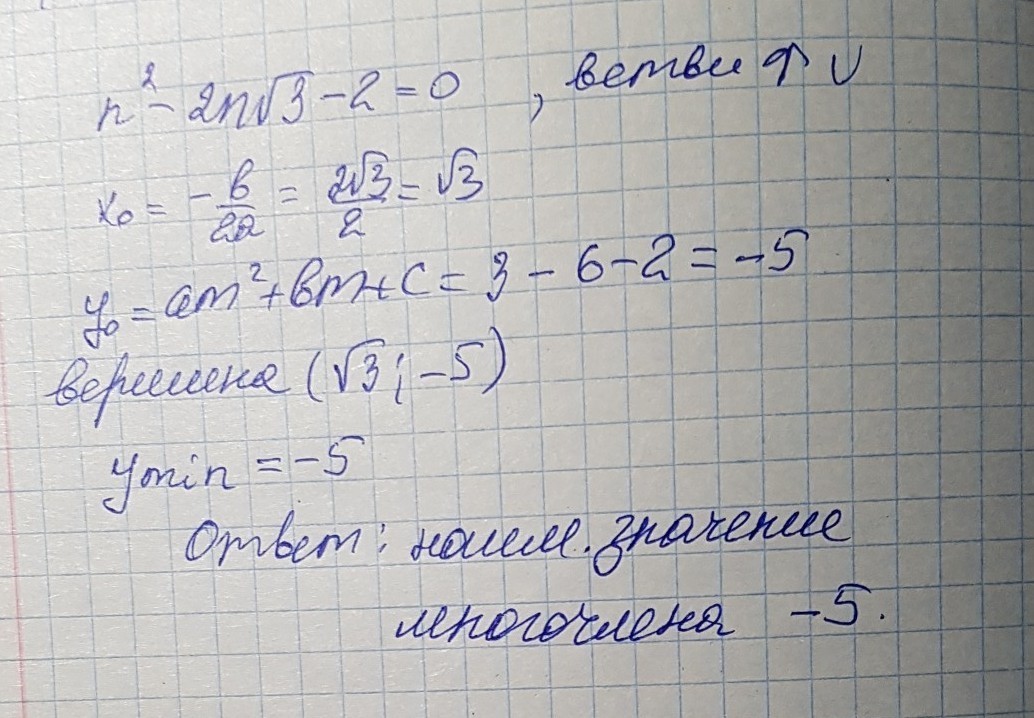 n² - 2n√3 - 2 = 0 , ветви ↑ ∪
x₀ = -в/2а = 2√3/2 = √3
y₀ = am² + вm + c = 3 - 6 - 2 = -5
вершина (√3; -5)
ymin = -5
Ответ: наим. значение
многочлена -5.